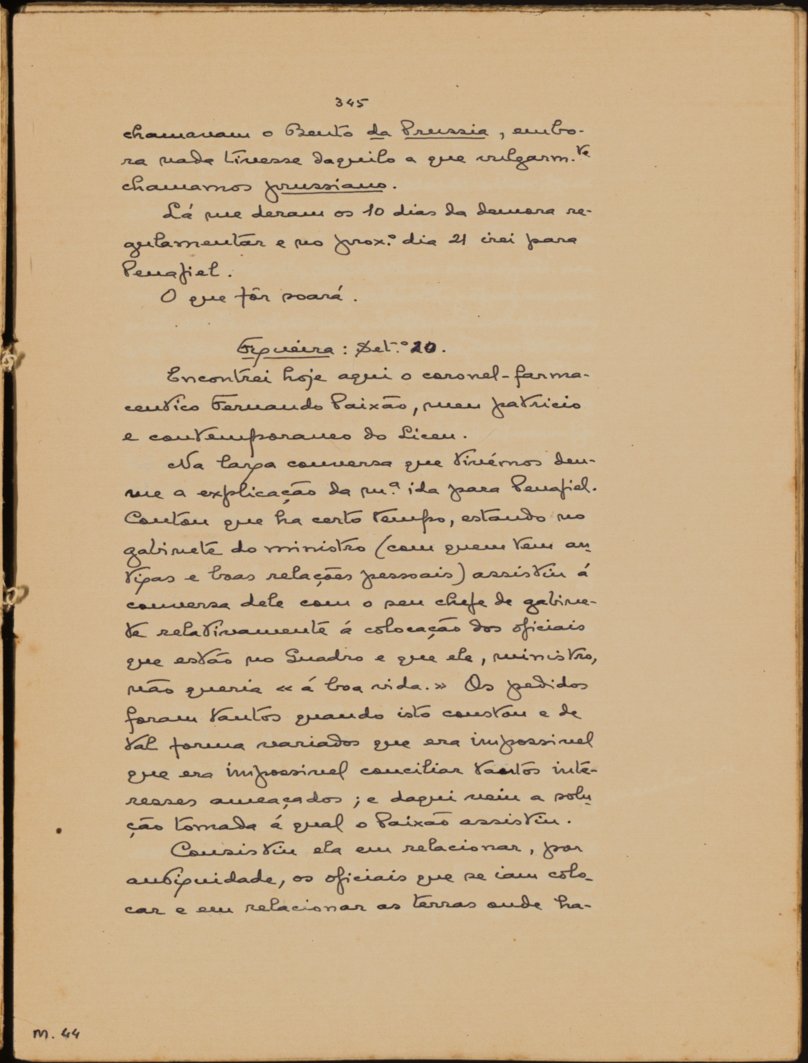 345
chamavam o Bento da Prussia, embo-
ra nada tivesse daquilo a que vulgarm.te
chamamos prussiano.
Lá me deram os 10 dias da demora re-
gulamentar e no prox.º dia 21 irei para
Penafiel.
O que fôr soará.
Figueira: Set.º 20.
Encontrei hoje aqui o coronel-farma-
ceutico Fernando Paixão, meu patricio
e contemporaneo do Liceu.
Na larga conversa que tivémos deu-
me a explicação da m.ª ida para Penafiel.
Contou que ha certo tempo, estando no
gabinete do ministro (com quem tem an-
tigas e boas relações pessoais) assistiu á
conversa dele com o seu chefe de gabine-
te relativamente á colocação dos oficiais
que estão no Quadro e que ele, ministro,
não queria «á boa vida.» Os pedidos
foram tantos quando isto constou e de
tal forma variados que era impossivel
que era impossivel conciliar tantos inte-
resses ameaçados; e daqui veiu a solu-
ção tomada á qual o Paixão assistiu.
Consistiu ela em relacionar, por
antiguidade, os oficiais que se iam colo-
car e em relacionar as terras onde ha-
M. 44